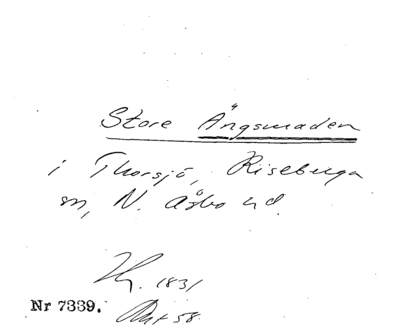 Store Ängsmaden
i Thorsjö, Riseberga
sn, N. Åsbo hd.
Hg. 1831
Akt 58.
Nr 7339.